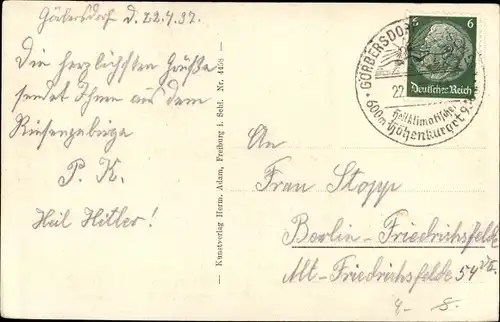 Görbersdorf d. 22.7.37.
Die herzlichsten Grüße
sendet Ihnen aus dem
Riesengebirge
P. K.
Heil Hitler!
Kunstverlag Herm. Adam, Freiburg i. Schl. Nr. 4458
GÖRBERSDORF
22.
heilklimatischer
600m Höhenkurort
6
Deutsches Reich
An
Frau Stopp
Berlin-Friedrichsfelde
Alt-Friedrichsfelde 54